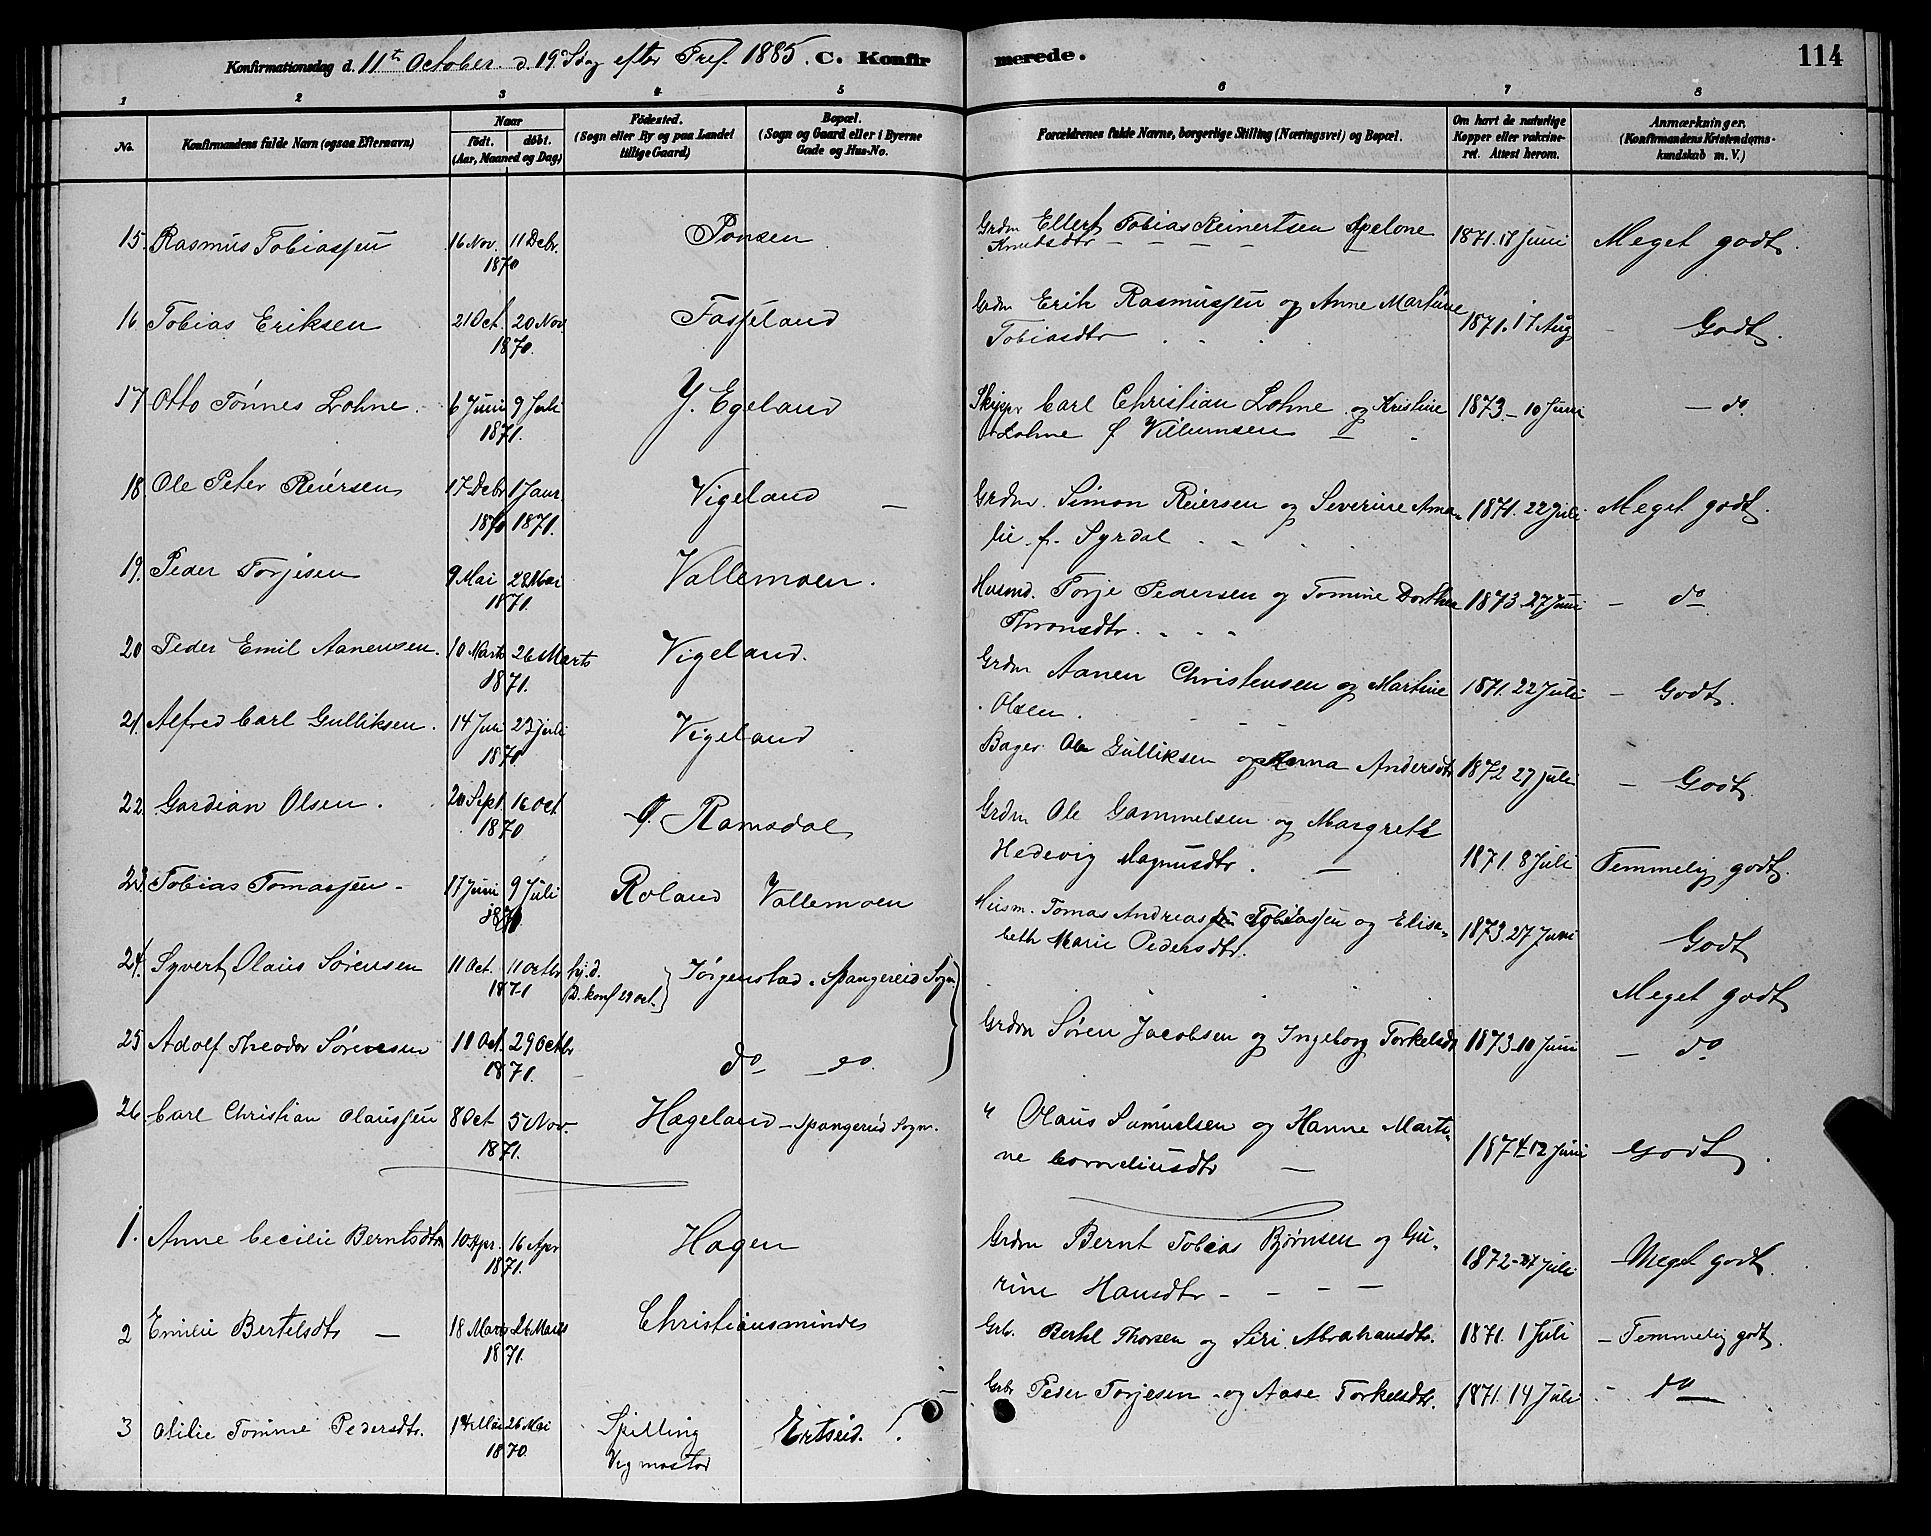 Konfirmationsdag d. 11te October. d. 19. Sdg efter Tref. 1885. C. Konfir merede. 114
1 2 3 4 5 6 7 8
No. Konfirmandens fulde Navn (ogsaa Efternavn) Naar født. døbt. (Aar, Maaned og Dag) Fødested. (Sogn eller By og paa Landet tillige Gaard) Bopæl. (Sogn og Gaard eller i Byerne Gade og Hus-No. Forældrenes fulde Navne, borgerlige Stilling (Næringsvei) og Bopæl. Om havt de naturlige Kopper eller vakcineret. Attest herom. Anmærkninger, (Konfirmandens Kristendomskundskab m. V.)
15. Rasmus Tobiassen 16 Nov. 11 Debr. Ponsen Grdm Ellert Tobias Reinertsen Apelone 1871. 17 Juni Meget godt.
1870 Knudsdtr
16 Tobias Eriksen 21 Oct. 20 Nov Fasseland Grdm Erik Rasmussen og Anne Martine 1871. 17 Aug - Godt.
1870. Tobiasdtr
17 Otto Tønnes Lohne. 6 Juni 9 Juli Y. Egeland Skippr Carl Christian Lohne og Kristine 1873 - 10 Juni - do
1871. Lohne f. Villumsen
18. Ole Peter Reiersen 17 Debr 1 Janr. Vigeland - Grdm. Simon Reiersen og Severine Ama- 1871. 22 Juli Meget godt.
1870 1871. lie f. Syrdal
19. Peder Torjesen 9 Mai 28 Mai Vallemoen. Husmd. Torje Pedersen og Tomine Dorthea 1873. 27 Juni - do
1871. Thronsdtr.
20 Peder Emil Aanensen. 10 Marts 26 Marts Vigeland. Grdm Aanen Christensen og Martine 1871. 22 Juli - Godt.
1871. Olsen.
21. Alfred Carl Gulliksen. 14 Juni 23 juli Vigeland Bager Ole Gulliksen og Anna Andersdtr 1872 27 juli - Godt.
1870
22. Gardian Olsen. 20 Sept. 16 Oct. Ramsdal Grdm Ole Gammelsen og Margrethe
1870 Hedevig Magnusdtr. 1871. 8 Juli Temmelig godt.
23. Tobias Tomassen - 17 Juni 9 Juli Roland Vallemoen Husm. Tomas Andreas Tobiassen og Elisa- 1873. 27 Juni Godt
1871 beth Marie Pedersdtr.
24. Syvert Olaus Sørensen 11 Oct. 11 Octbr hj.d. Jørgenstad - Spangereid Sogn Meget godt
1871 D. konf 29 Oct.
25 Adolf Theodor Sørensen 11 Oct. 29 Octbr do - do. Grdm Søren Jacobsen og Ingeborg Torkelsdr 1873 10 Juni - do
1871.
26 Carl Christian Olaussen 8 Oct 5 Nov. Hageland - Spangereid Sogn. " Olaus Samuelsen og Hanne Marti- 1874 12 Juni Godt.
1871. ne Corneliusdtr
1. Anne Cecilie Berntsdtr 10 Apr. 16 Apr Hagen Grdm Bernt Tobias Bjørnsen og Gu- 1872 - 27 Juli - Meget godt.
1871. rine Hansdtr - - - -
2 Emilie Bertelsdtr - 18 Marts 26 Marts Christiansminde Grb. Bertel Thorsen og Siri Abrahamsdtr. 1871. 1 Juli - Temmelig godt.
1871.
3 Otilie Tomine Pedersdtr. 14 Mai 26 Mai Spilling Ertseid. Grbr Peder Torjesen og Aase Torkelsdtr. 1871. 14 Juli - do
1870. Vigmostad